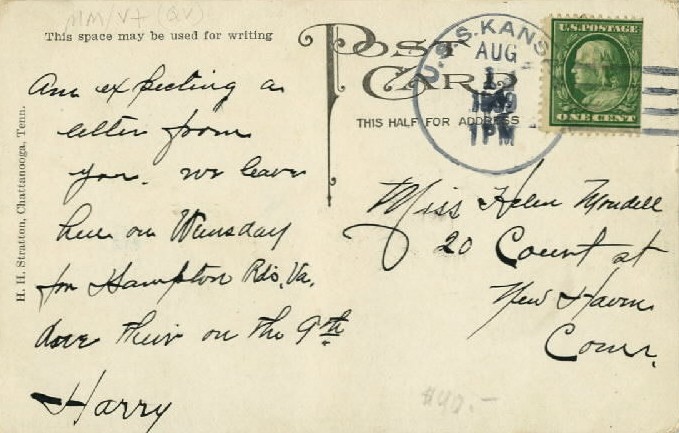 MM/V+ (QV)
This space may be used for writing
POST CARD
THIS HALF FOR ADDRESS
U.S.S. KANS
AUG
1909
1 PM
U.S. POSTAGE
ONE CENT
H. H. Stratton, Chattanooga, Tenn.
Am expecting a
letter from
you. we leave
here on Wensday
for Hampton Rds, Va.
due their on the 9th
Harry
Miss Helen Mondell
20 Court st
New Haven
Conn.
$40.-